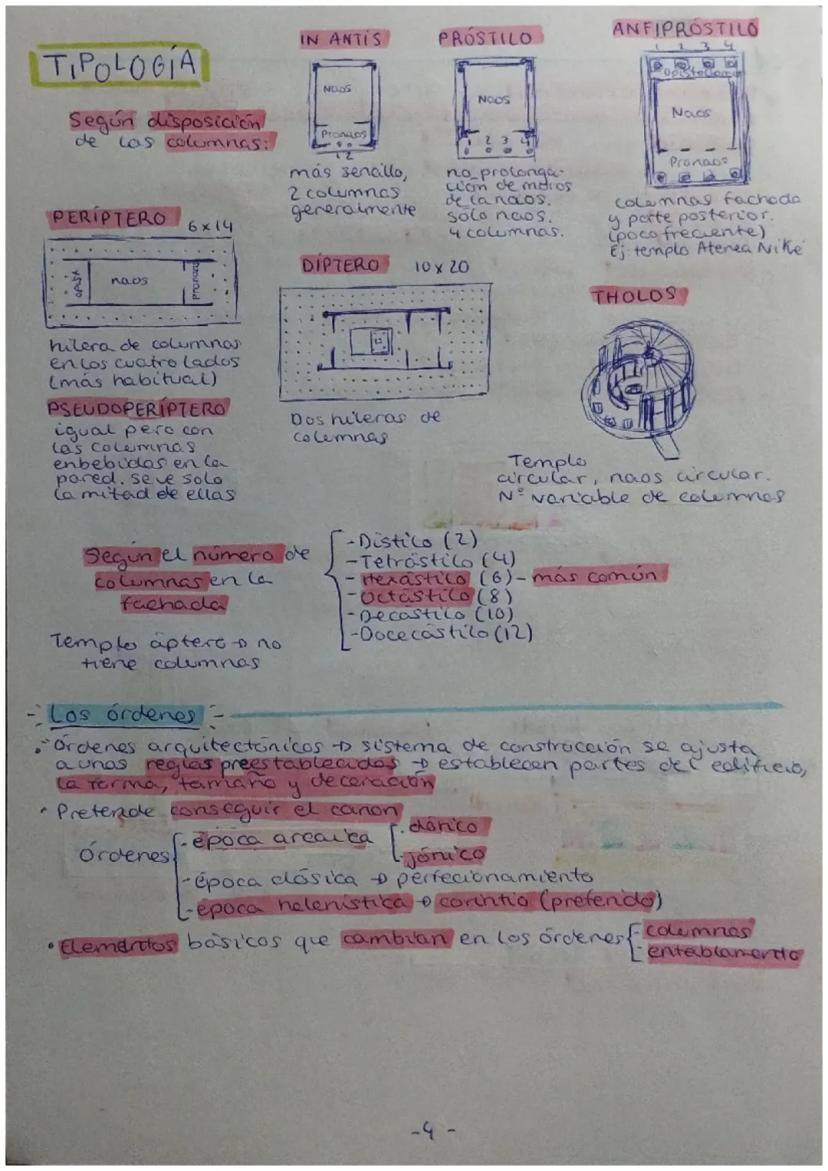 TIPOLOGÍA
Según disposición
de las columnas:
IN ANTIS
Naos
Pronaos
1 2
más sencillo,
2 columnas
generalmente
PRÓSTILO
Naos
1 2 3 4
no prolonga-
ción de muros
de la naos.
sólo naos.
4 columnas.
ANFIPRÓSTILO
1 2 3 4
Opistodomo
Naos
Pronaos
columnas fachada
y parte posterior.
(poco frecuente)
Ej: templo Atenea Niké
PERÍPTERO 6x14
naos
pronaos
hilera de columnas
en los cuatro lados
(más habitual)
PSEUDOPERÍPTERO
igual pero con
las columnas
enbebidas en la
pared. se ve solo
la mitad de ellas
DÍPTERO 10x20
Dos hileras de
columnas
THOLOS
Templo
circular, naos circular.
Nº variable de columnas
Según el número de
columnas en la
fachada
-Dístilo (2)
-Tetrástilo (4)
-Hexástilo (6)- más común
-Octástilo (8)
-Decástilo (10)
-Docecástilo (12)
Templo áptero → no
tiene columnas
-Los órdenes-
· Órdenes arquitectónicos → sistema de construcción se ajusta
a unas reglas preestablecidas → establecen partes del edificio,
la forma, tamaño y decoración
· Pretende conseguir el canon
Órdenes
-época arcaica
-dórico
-jónico
-época clásica → perfecionamiento
-época helenística → corintio (preferido)
· Elementos básicos que cambian en los órdenes
-columnas
-entablamento
-4-